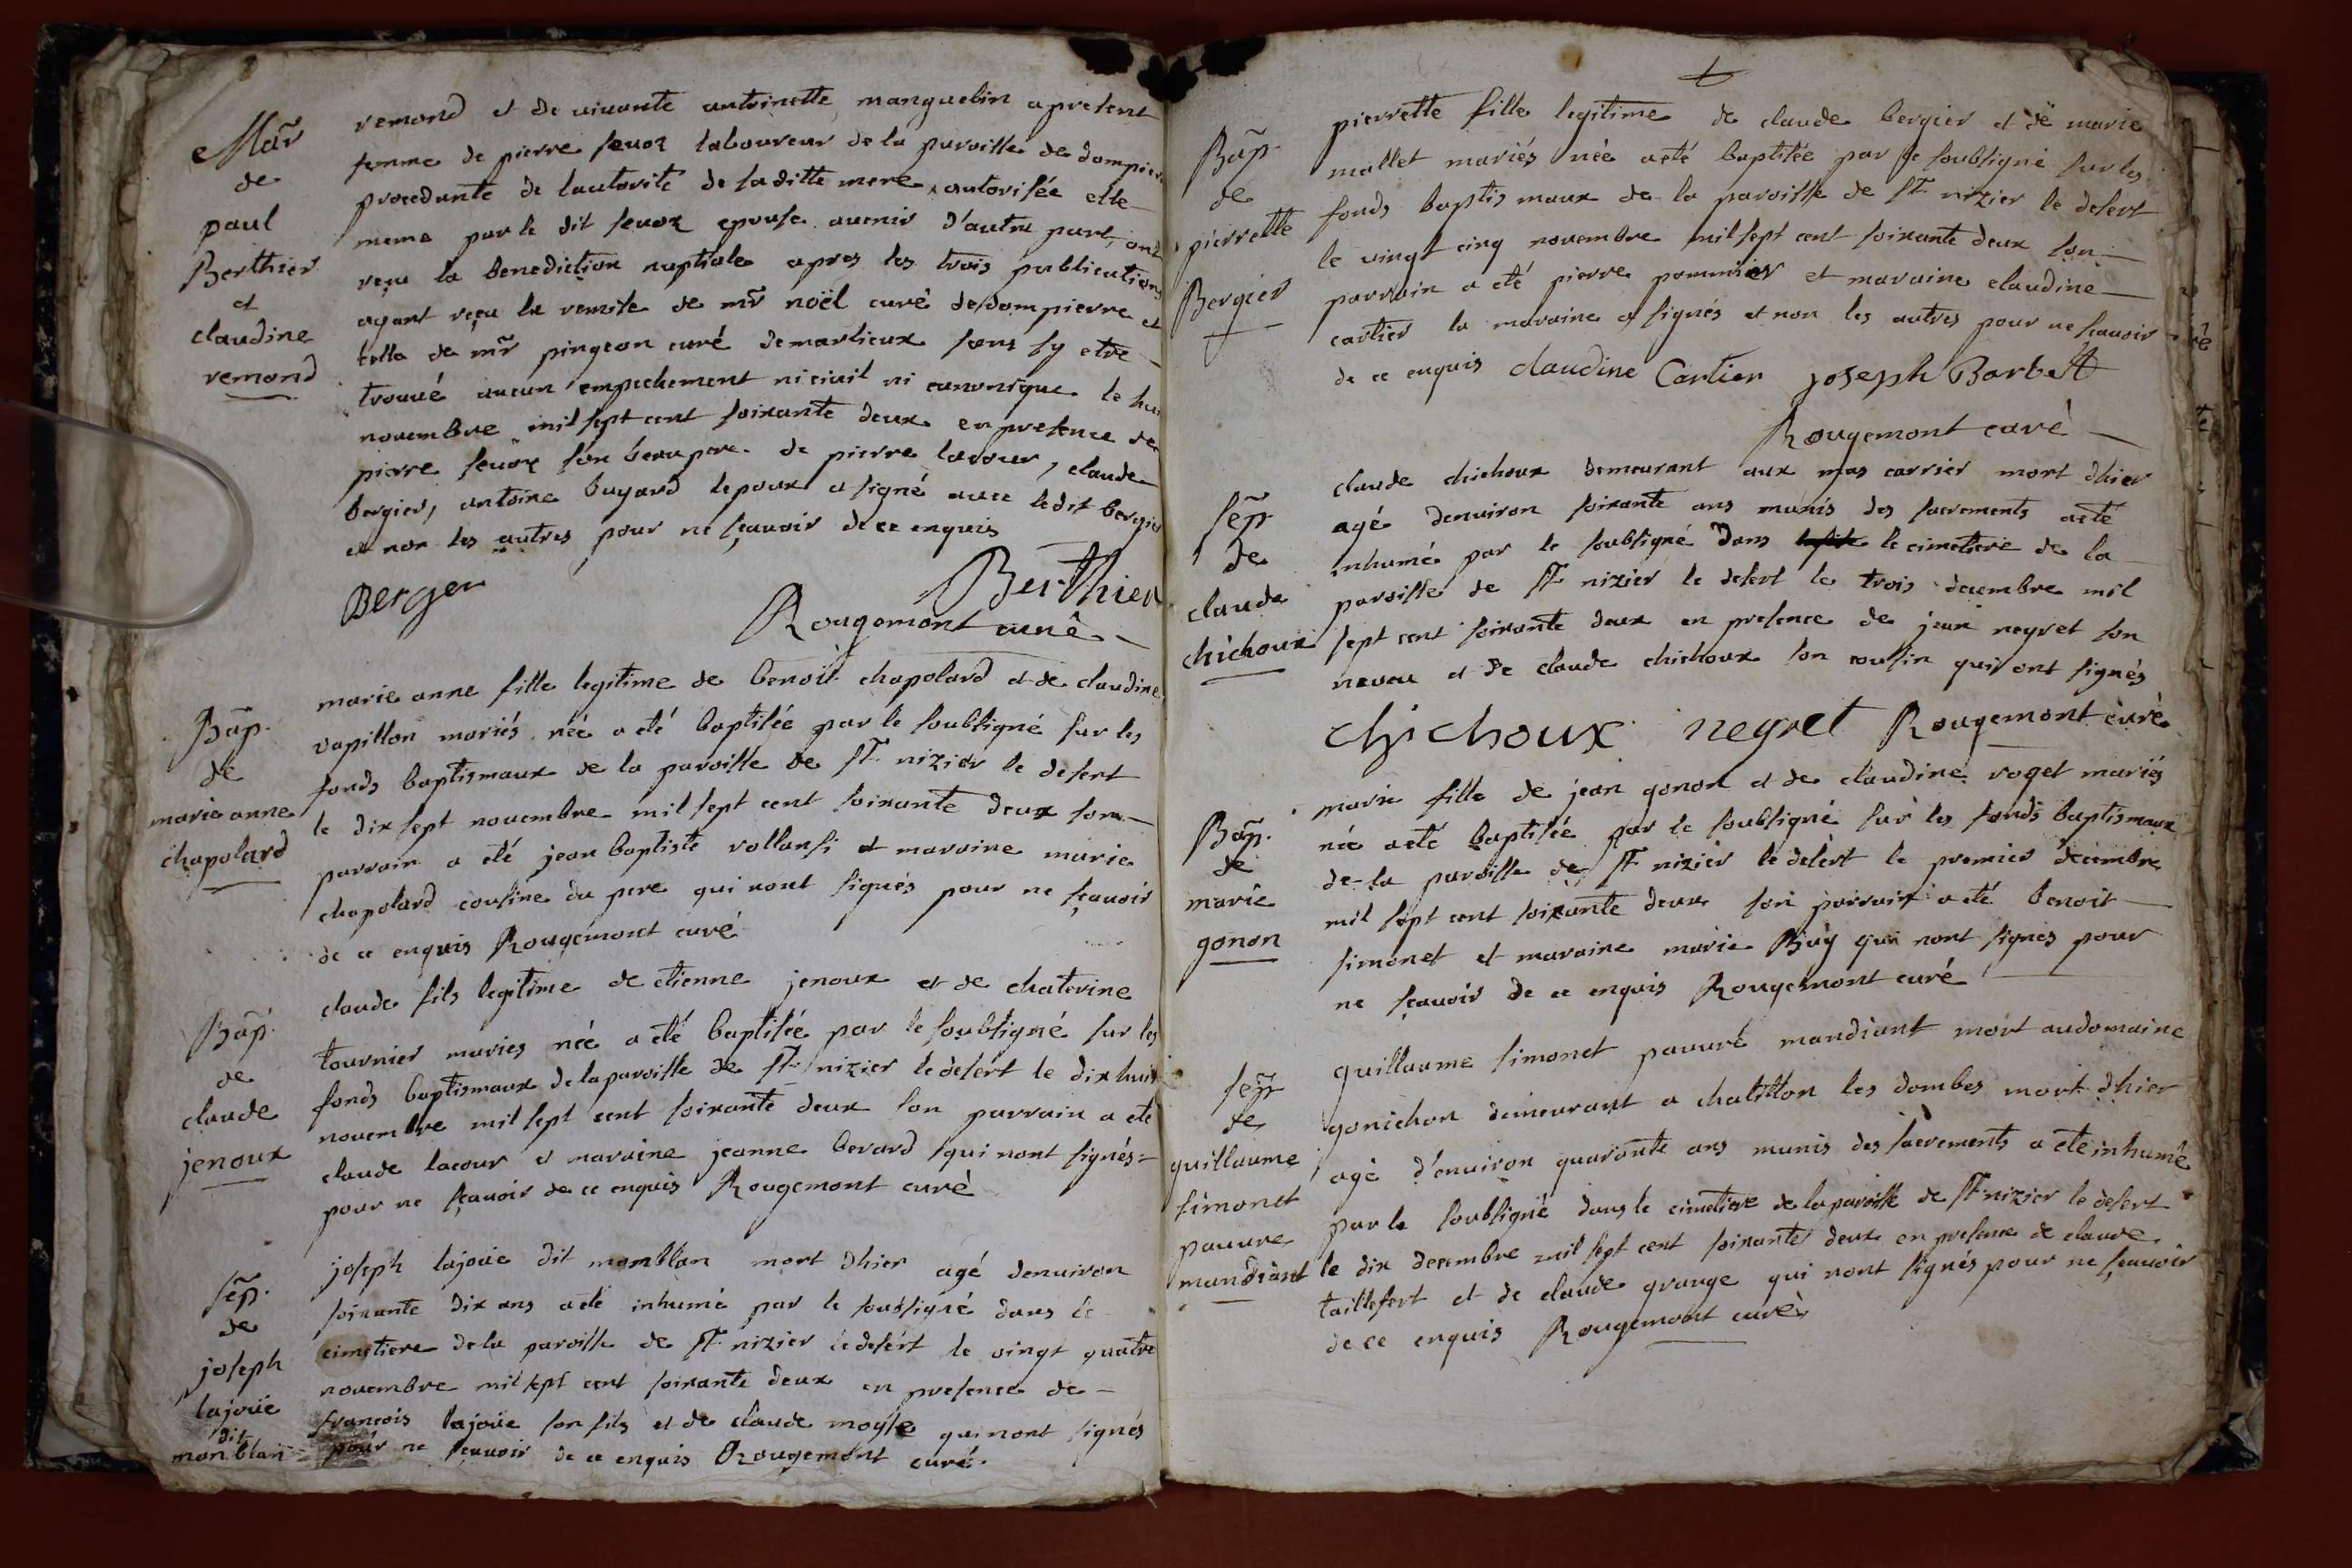 Mar̃
de
paul
Berthier
et
claudine
remond
remond et de vivante antoinette manguelin a present
femme de pierre sevoz laboureur de la paroisse de dompierre
procedante de lautorité de laditte mere, autorisée elle
meme par le dit sevoz epouse avenir d'autre part, ont
reçu la benediction nuptiale apres les trois publications
ayant reçu la remise de mr̃ noël curé de dompierre et
celle de mr̃ pingeon curé de marlieux sens sy etre
trouvé aucun empechement ni civil ni canonique le huit
novembre mil sept cent soixante deux en presence de
pierre sevoz son beaupere de pierre lavour, claude
bergier, antoine buyard lepoux a signé avec ledit bergier
et non les autres pour ne sçavoir de ce enquis
Berger Berthier
Rougemont curé
Bap̃.
de
marie anne
chapolard
marie anne fille legitime de benoit chapolard et de claudine
vapillon mariés née a eté baptisée par le soubsigné sur les
fonds baptismaux de la paroisse de St nizier le desert
le dix sept novembre mil sept cent soixante deux son
parrain a eté jean baptiste vollansi et maraine marie
chapolard cousine du pere qui nont signés pour ne sçavoir
de ce enquis Rougemont curé
Bap̃.
de
claude
jenoux
claude fils legitime de etienne jenoux et de chaterine
tournier maries née a eté baptisée par le soubsigné sur les
fonds baptismaux de la paroisse de St nizier le desert le dix huit
novembre mil sept cent soixante deux son parrain a eté
claude lacour et maraine jeanne berard qui nont signés
pour ne sçavoir de ce enquis Rougemont curé
sep̃.
de
joseph
lajoüe
dit
monblan
joseph lajoüe dit momblan mort dhier agé denviron
soixante dix ans a eté inhumé par le soubsigné dans le
cimetiere de la paroisse de St nizier le desert le vingt quatre
novembre mil sept cent soixante deux en presence de
françois lajoüe son fils et de claude moyse qui nont signés
pour ne sçavoir de ce enquis Rougemont curé.
Bap̃.
de
pierrette
Bergier
pierrette fille legitime de claude bergier et de marie
mallet mariés née a eté baptisée par le soubsigné sur les
fonds baptis maux de la paroisse de St nizier le desert
le vingt cinq novembre mil sept cent soixante deux son
parrain a eté pierre pommier et maraine claudine
cartier la maraine a signés et non les autres pour ne sçavoir
de ce enquis claudine Cartier joseph Barbett
Rougemont curé
sep̃
de
claude
chichoux
claude chichoux demeurant aux mas carrier mort dhier
agé denviron soixante ans munis des sacrements a eté
inhumé par le soubsigné dans le cimetiere de la
paroisse de St nizier le desert le trois decembre mil
sept cent soixante deux en presence de jean neyret son
neveu et de claude chichoux son cousin qui ont signés
chichoux neyret Rougemont curé
Bap̃.
de
marie
gonon
marie fille de jean gonon et de claudine roget mariés
née a eté baptisée par le soubsigné sur les fonds baptismaux
de la paroisse de St nizier le desert le premier decembre
mil sept cent soixante deux son parrain a eté benoit
simonet et maraine marie Buy qui nont signes pour
ne sçavoir de ce enquis Rougemont curé
sep̃
de
guillaume
simonet
pauvre
mandiant
guillaume simonet pauvre mandiant mort au domaine
gonichon demeurant a chatillon les dombes mort dhier
agé d'environ quarante ans munis des sacrements a eté inhumé
par le soubsigné dans le cimetiere de la paroisse de St nizier le desert
le dix decembre mil sept cent soixante deux en presence de claude
taillefert et de claude grange qui nont signés pour ne sçavoir
de ce enquis Rougemont curé